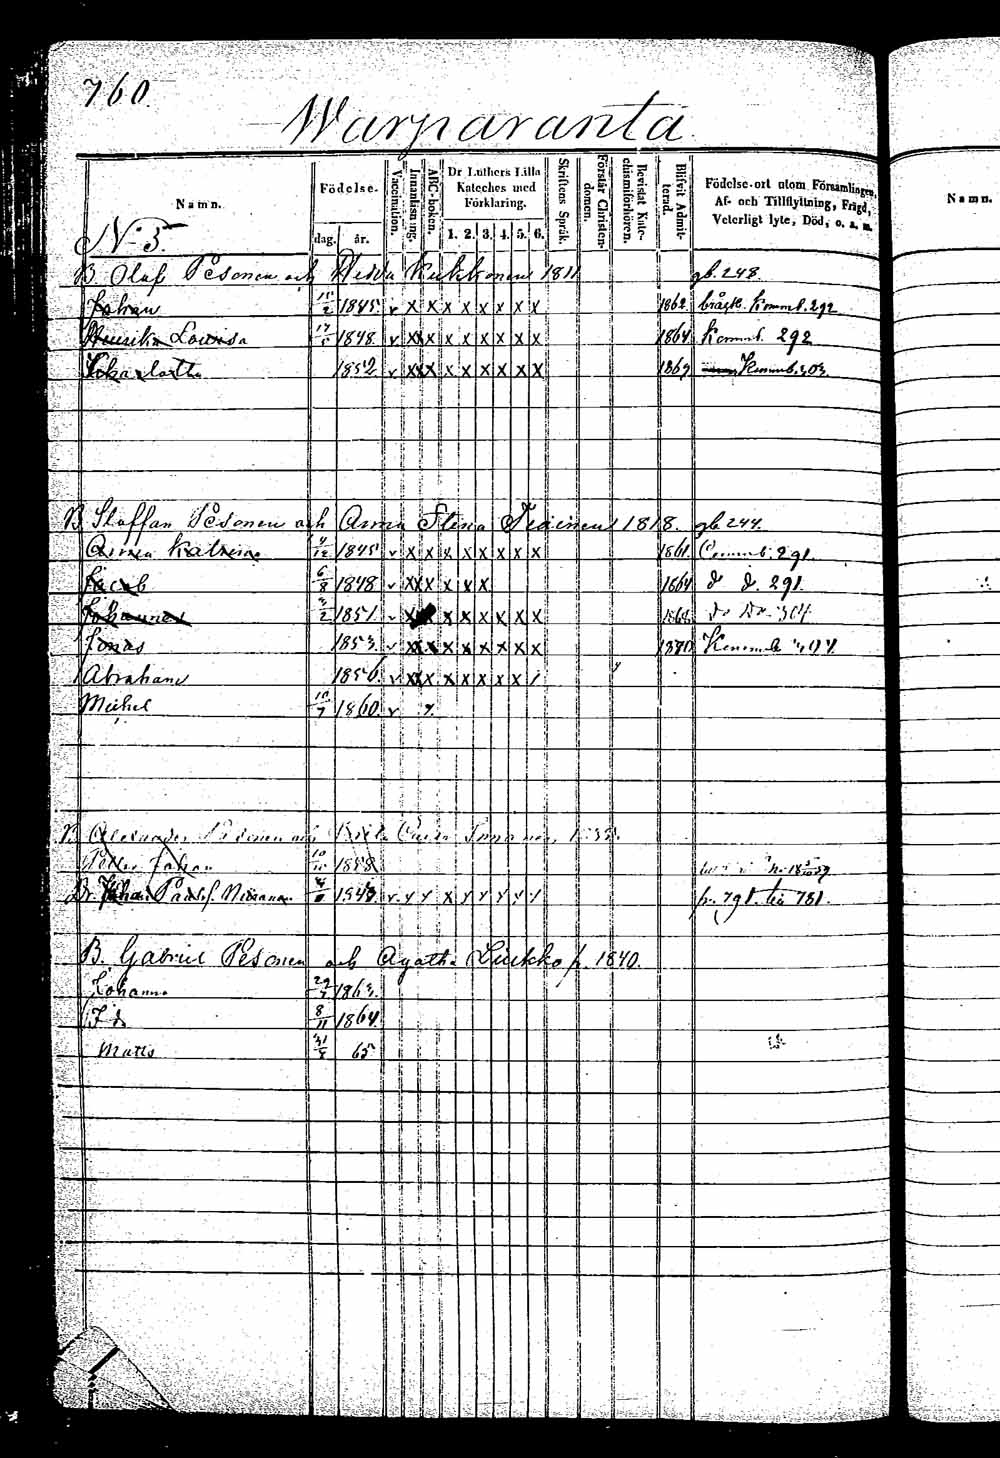 760.
Warparanta
Namn.
Födelse-
dag. år.
Vaccination.
Innanläsning.
ABC-boken.
Dr Luthers Lilla Kateches med Förklaring.
1. 2. 3. 4. 5. 6.
Skriftens Språk.
Förstår Christendomen.
Bevistat Katechismiförhören.
Blifvit Admitterad.
Födelse-ort utom Församlingen, Af- och Tillflyttning, Frägd, Veterligt lyte, Död, o. s. v.
Namn.
N:o 5
B. Olaf Pesonen och Hedda Kukkonen 1811 gb. 248
Johan 15/2 1845 v x x x x x x x x 1862 Kommb. 292
Henrika Lovisa 1848 v x x x x x x x x 1864 Kommb. 292
1852 v x x x x x x x x 1869 Kommb. 303
B. Staffan Pesonen och Anna Stina 1818. gb 244.
Anna Katrina 1845 v x x x x x x x x 1861 Commb. 291.
Jacob 6/8 1848 v x x x x x 1864 d d. 291.
Johannes 1851. v x x x x x x x do Do. 304
Jonas 1853. v x x x x x x x x 1870 Kommb
Abraham 1856. v x x x x x x x /
Michel 10/7 1860. v
B. Alexander Pesonen och
Petter Johan 1858
Dr. Johan p. 791. 781.
B. Gabriel Pesonen och Agatha Liukko f. 1840.
Johanna 1863.
Id 8/11 1864
Matts 65